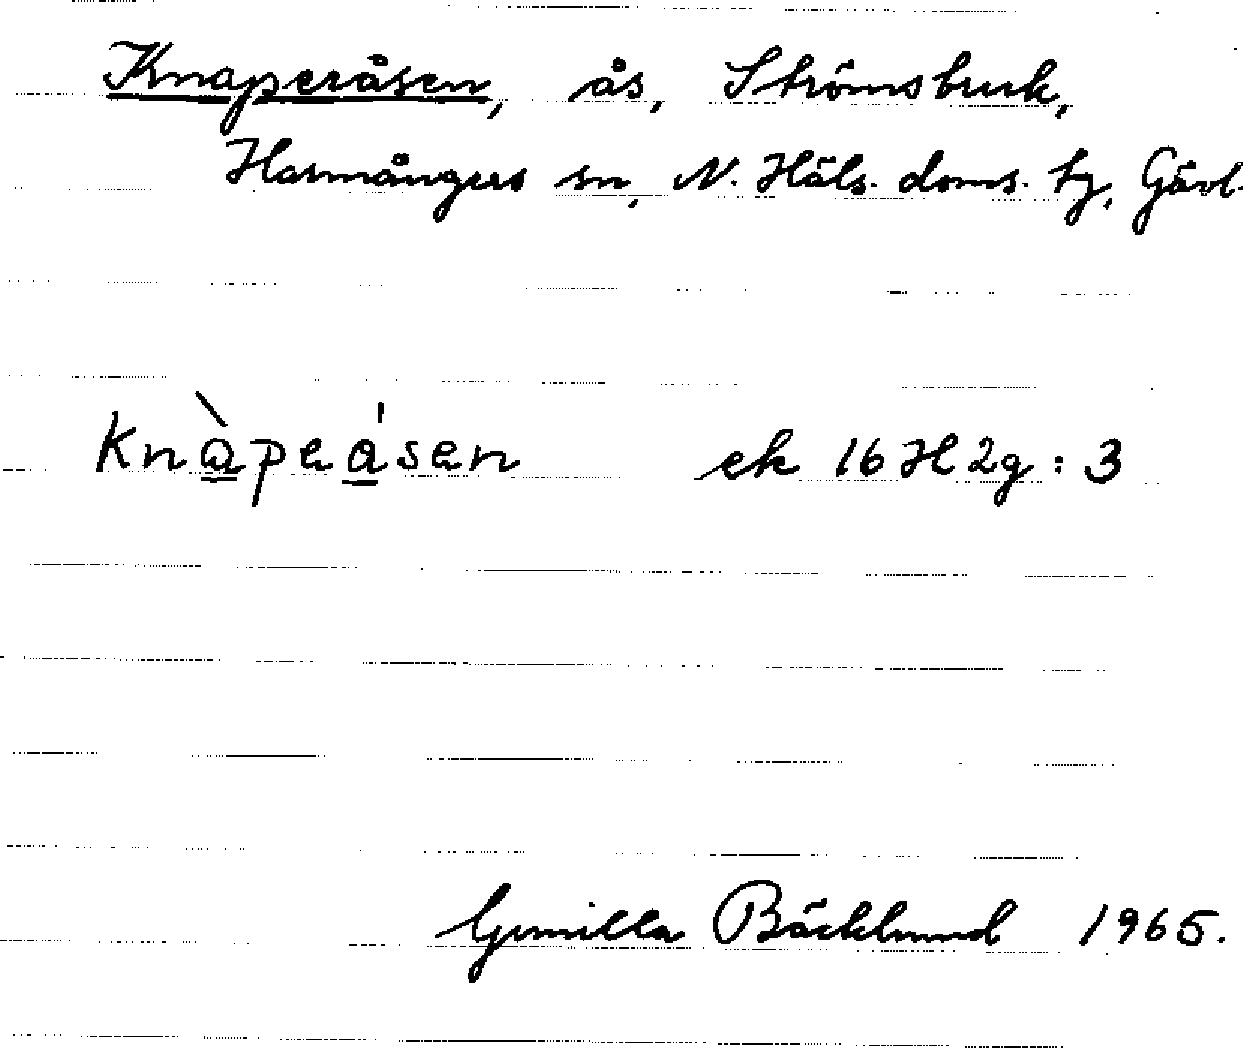 Knaperåsen, ås, Strömsbruk,
Harmångers sn, N. Häls. doms. tg, Gävl.
Knàpeåsen ek 16 H 2g : 3
Gunilla Bäcklund 1965.